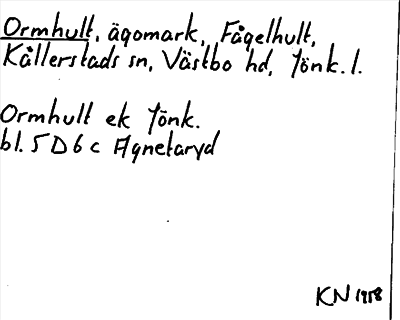 Ormhult, ägomark, Fågelhult,
Kållerstads sn, Västbo hd, Jönk. l.
Ormhult ek Jönk.
bl. 5 D 6 c Agnetaryd
KN 1958